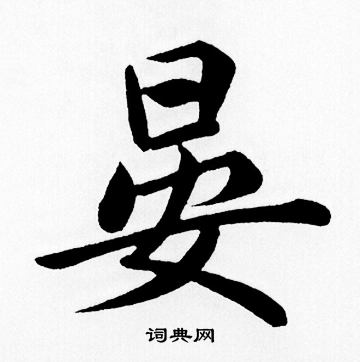 晏
词典网